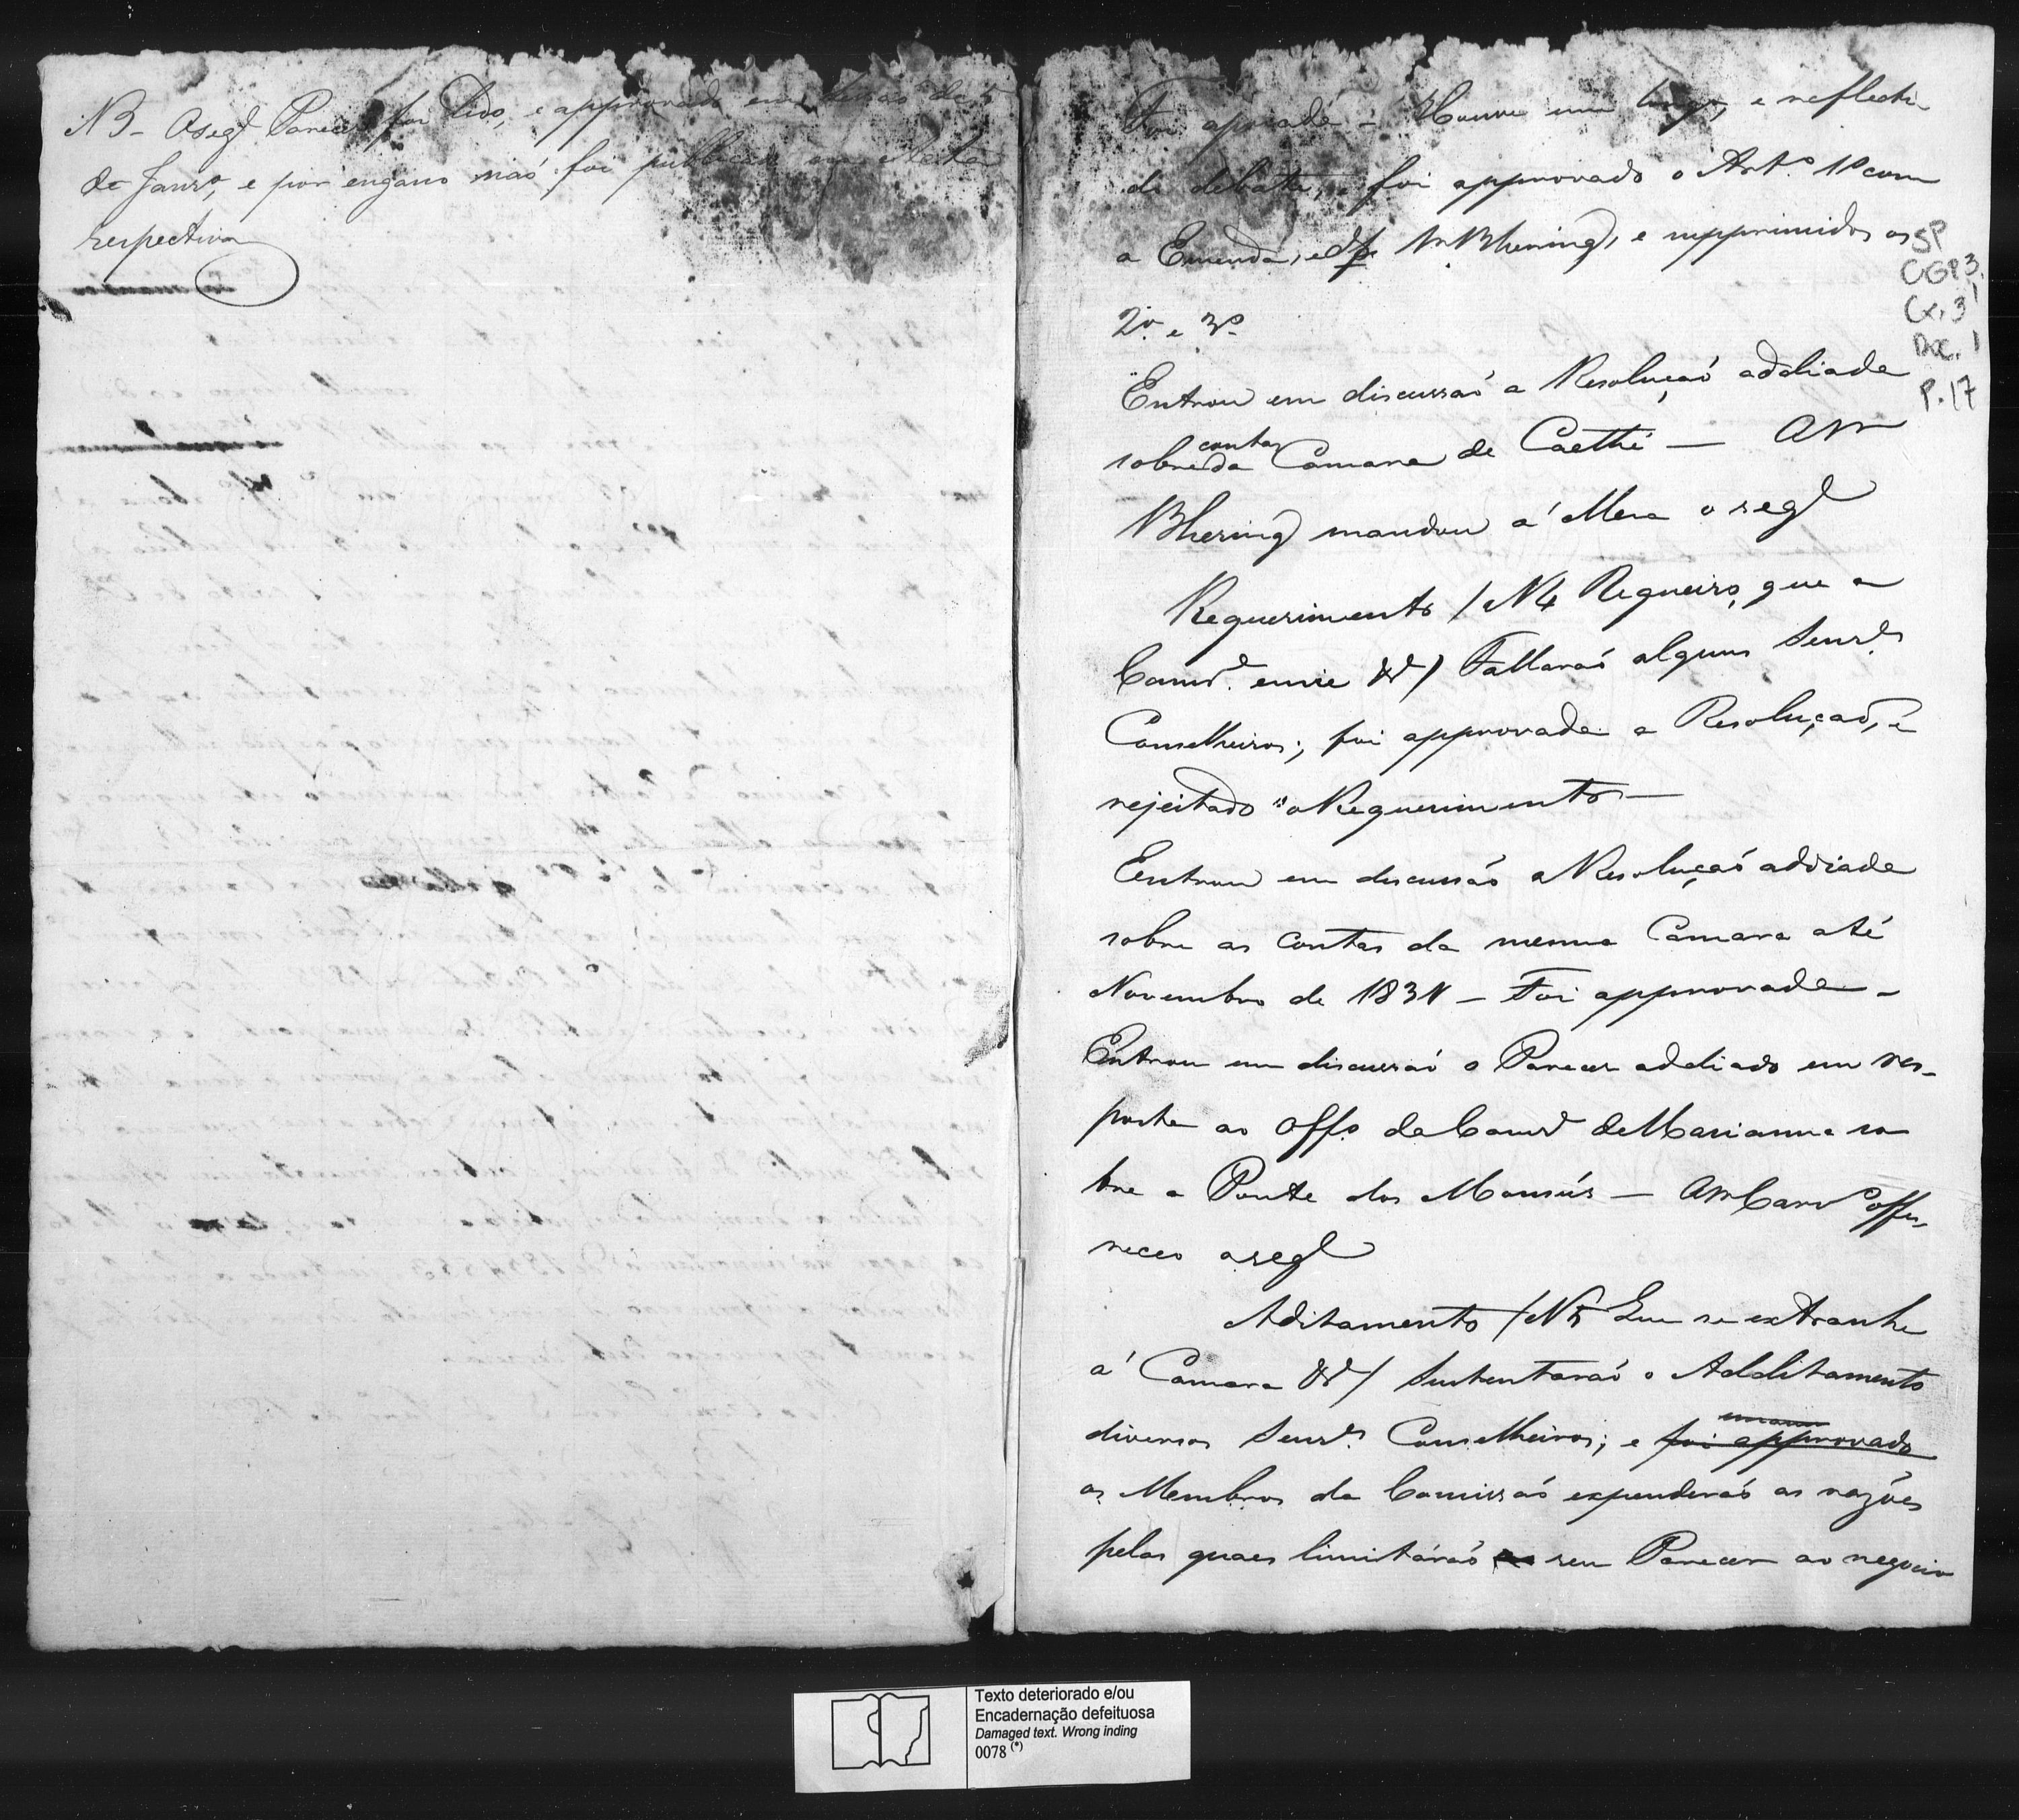 NB - O seg.e Parecer foi lido, e approvado em
de Janr.o, e por engano naõ foi public na Acta
respectiva
Foi apoiada - Houve um longo, e reflecti-
do debate, e foi approvado o Art.o 1º com
a Emenda, do Sr Bhering, e supprimidos os
2.o e 3.o
Entrou em discussaõ a Resoluçaõ addiada
contas
sobre da Camara de Caethé — O Sr
Bhering mandou á Mesa o seg.e
Requerimento / N 4 Requeiro, que a
Camr.a envie &.a / Fallaraõ alguns Senr.es
Conselheiros; foi approvada a Resoluçaõ, e
rejeitado o Requerimento —
Entrou em discussaõ a Resoluçaõ addiada
sobre as contas da mesma Camara até
Novembro de 1831 — Foi approvada -
Entrou em discussaõ o Parecer addiado em res-
posta ao Off.o da Camr.a de Marianna so
bre a Ponte dos Monsús — O Sr Carv.o offe-
receo o seg.e
Aditamento / N 5 Que se extranhe
á Camara &.a / Sustentaraõ o Additamento
diversos Senr.es Conselheiros; e foi approvado
os Membros da Comissaõ expenderaõ as razões
pelas quaes limitáraõ seu Parecer ao negocio
SP
CGP3.
Cx. 3
Doc. 1
P. 17
Texto deteriorado e/ou
Encadernação defeituosa
Damaged text. Wrong inding
0078 (*)